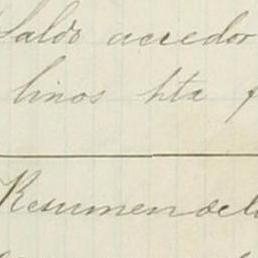 Saldo acreedor
linos hta
Resumen del